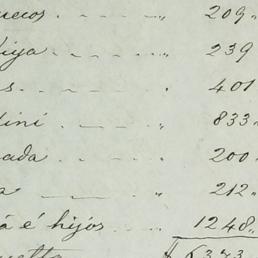 uecos . - - - „ 209 „
lija - - - „ 239
s. - - - „ 401
dini . - - - „ 833 „
ada . - - - „ 200 „
a - - - „ 212 „
á é hijos . - - 1248 „
uetta $ 6373